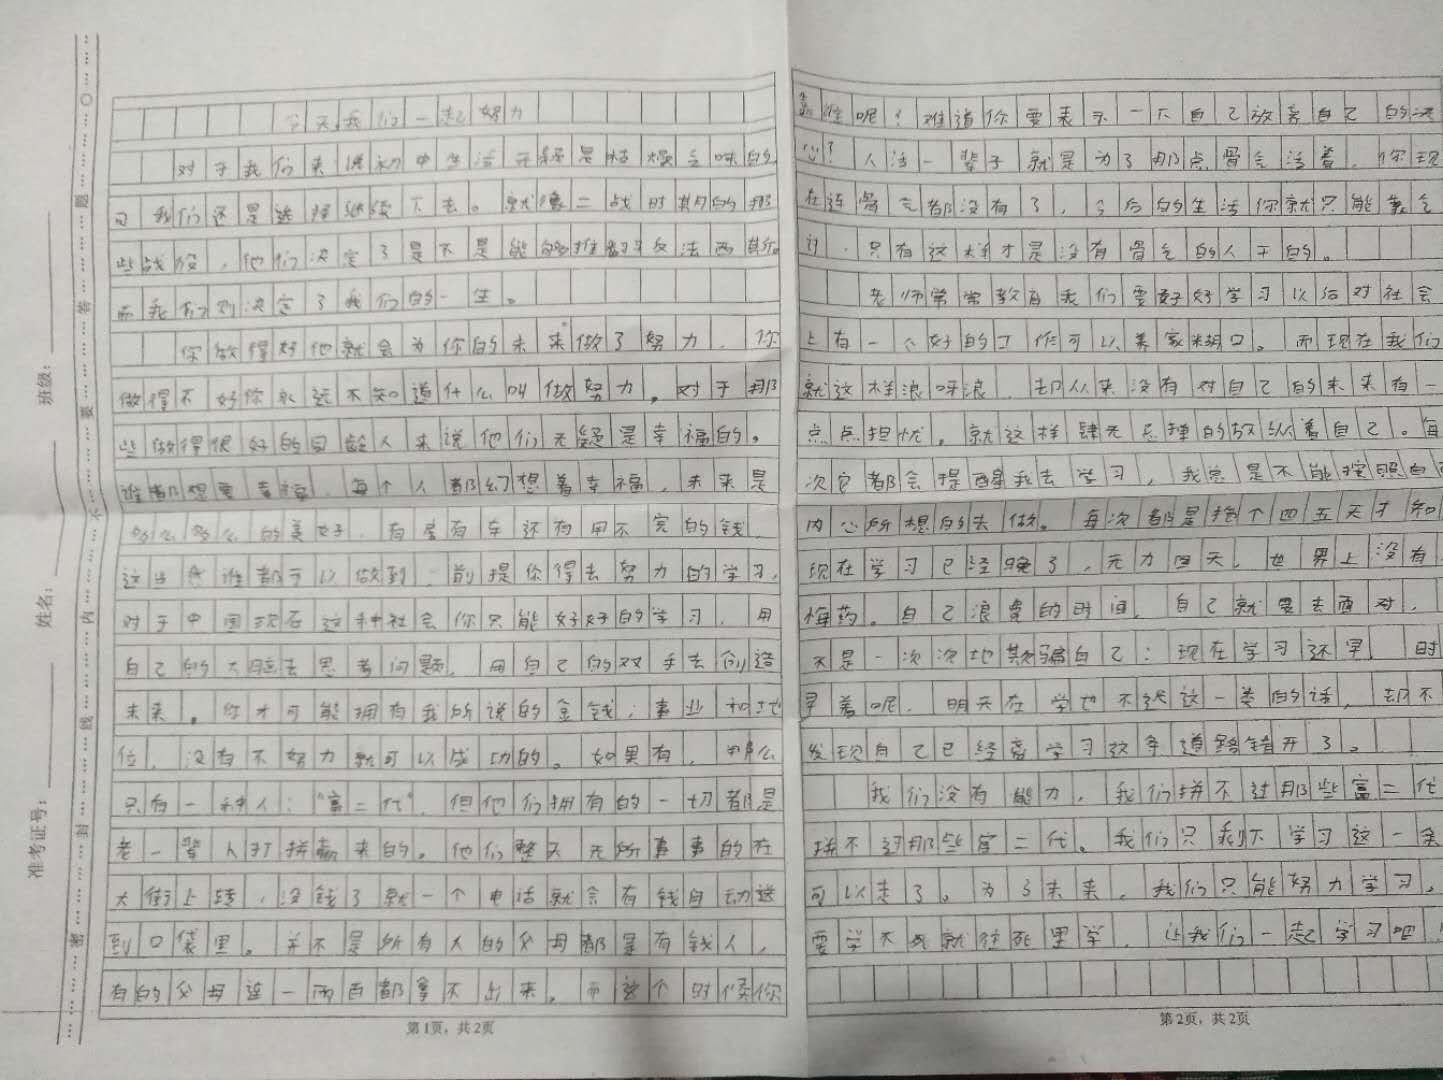 今天我们一起努力
对于我们来说初中生活无疑是枯燥乏味的
可我们还是选择继续下去。就像二战时期的那
些战役，他们决定了是不是能够推翻反法西斯。
而我们则决定了我们的一生。
你做得好他就会为你的未来做了努力，你
做得不好你永远不知道什么叫做努力。对于那
些做得很好的同龄人来说他们无疑是幸福的。
谁都想要幸福，每个人都幻想着幸福，未来是
多么多么的美好，有房有车还有用不完的钱，
这些是谁都可以做到，前提你得去努力的学习，
对于中国现在这种社会你只能好好的学习，用
自己的大脑去思考问题，用自己的双手去创造
未来。你才可能拥有我所说的金钱；事业和地
位，没有不努力就可以成功的。如果有，那么
只有一种人："富二代"，但他们拥有的一切都是
老一辈人打拼赢来的。他们整天无所事事的在
大街上转，没钱了就一个电话就会有钱自动送
到口袋里。并不是所有人的父母都是有钱人，
有的父母连一两百都拿不出来。而这个时候你
靠谁呢？难道你要表示一下自己放弃自己的决
心？人活一辈子就是为了那点骨气活着，你现
在连骨气都没有了，今后的生活你就只能靠乞
讨，只有这样才是没有骨气的人干的。
老师常常教育我们要好好学习以后对社会
上有一个好的工作可以养家糊口。而现在我们
就这样浪呀浪，却从来没有对自己的未来有一
点点担忧。就这样肆无忌惮的放纵着自己。每
次它都会提醒我去学习，我总是不能按照自己
内心所想的去做。每次都是挨个四五天才知
现在学习已经晚了，无力回天，世界上没有
悔药。自己浪费的时间，自己就要去面对，
不是一次次地欺骗自己：现在学习还早，时
早着呢，明天在学也不迟这一类的话，却不
发现自己已经离学习这条道路错开了。
我们没有能力，我们拼不过那些富二代
拼不过那些官二代。我们只剩下学习这一条
可以走了。为了未来，我们只能努力学习，
要学不死就往死里学，让我们一起学习吧！
第1页，共2页
第2页，共2页
密封线内不要答题
班级：
姓名：
准考证号：